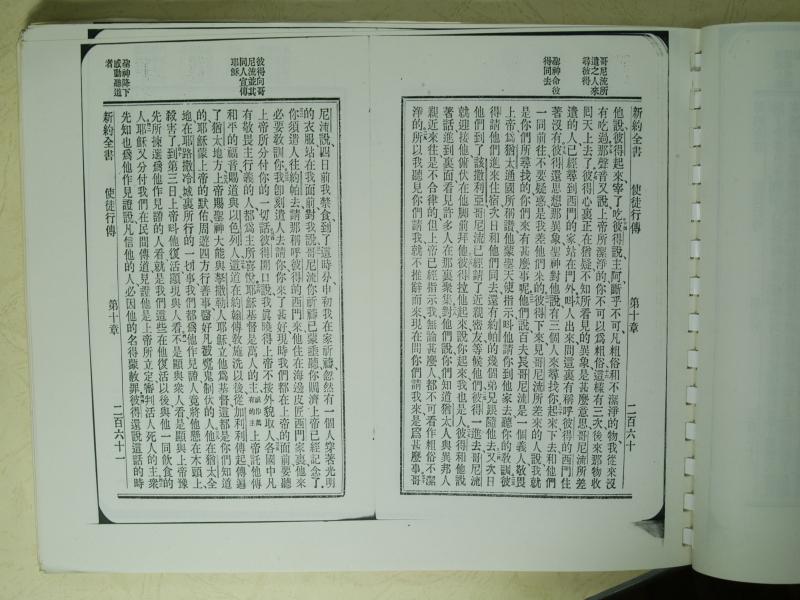 哥尼流所
遣之人來
尋彼得
聖神命彼
得同去
新約全書 使徒行傳 第十章 二百六十
他說彼得起來宰了吃彼得說主阿斷乎不可凡粗俗和不潔淨的物我從來沒
有吃過那聲音又說上帝所潔淨的你不可以為粗俗這樣有三次後來那物收
回天上去了彼得心裏正在猶疑不知所看見的異象是甚麼意思哥尼流所差
遣的人已經尋到西門的家站在門外呌人出來問這裏有稱呼彼得的西門住
著沒有彼得還思想那異象聖神對他說有三個人來尋找你起來下去和他們
一同前往不要疑惑是我差他們來的彼得下來見哥尼流所差來的人說我就
是你們所尋找的你們來有甚麼事呢他們說百夫長哥尼流是一個義人敬畏
上帝為猶太通國所稱讚他蒙聖天使指示呌他請你到他家去聽你的敎訓彼
得請他們進來住宿次日和他們同去還有約帕的幾個弟兄跟隨他去又次日
他們到了該撒利亞哥尼流已經請了近親密友等候他們彼得一進去哥尼流
就迎接他俯伏在他脚前拜他彼得拉他起來說你起來我也是人彼得和他說
著話進到裏面看見許多人在那裏聚集對他們說你們知道猶太人與異邦人
親近來往是不合律的但上帝已經指示我無論甚麼人都不可看作粗俗不潔
淨的所以我聽見你們請我就不推辭而來現在問你們請我來是為甚麼事哥
彼得向哥
尼流並其
同人宣傳
耶穌
聖神降下
感動聽道
者
尼流說四日前我禁食到了這時分申初我在家祈禱忽然有一個人穿著光明
的衣服站在我面前對我說哥尼流你祈禱已蒙垂聽你賙濟上帝已經記念了
你須遣人往約帕去請那稱呼彼得的西門來他住在海邊皮匠西門家裏他來
必要敎訓你我卽刻遣人去請你你來了甚好現時我們都在上帝的面前要聽
上帝所分付你的一切話彼得開口說我眞曉得上帝不按外貌取人各國中凡
有敬畏主行義的人都為主所喜悅耶穌基督是萬人的主上帝託他傳
和平的福音賜道與以色列人這道在約翰傳敎施洗以後從加利利傳起傳遍
了猶太地方上帝賜聖神大能與拏撒勒人耶穌立他為基督這都是你們知道
的耶穌蒙上帝的默佑周遊四方行善事醫好凡被魔鬼制伏的人他在猶太全
地在耶路撒冷城裏所行的一切事我們都爲他作見證人竟將他懸在木頭上
殺害了到第三日上帝呌他復活顯現與人看不是顯與衆人看是顯與上帝豫
先所揀選爲他作見證的人看就是我們這些在他復活以後與他一同飲食的
人耶穌又分付我們在民間傳道見證他是上帝所立定審判活人死人的主衆
先知也爲他作見證說凡信他的人必因他的名得蒙赦罪彼得還說這話的時
新約全書 使徒行傳 第十章 二百六十一